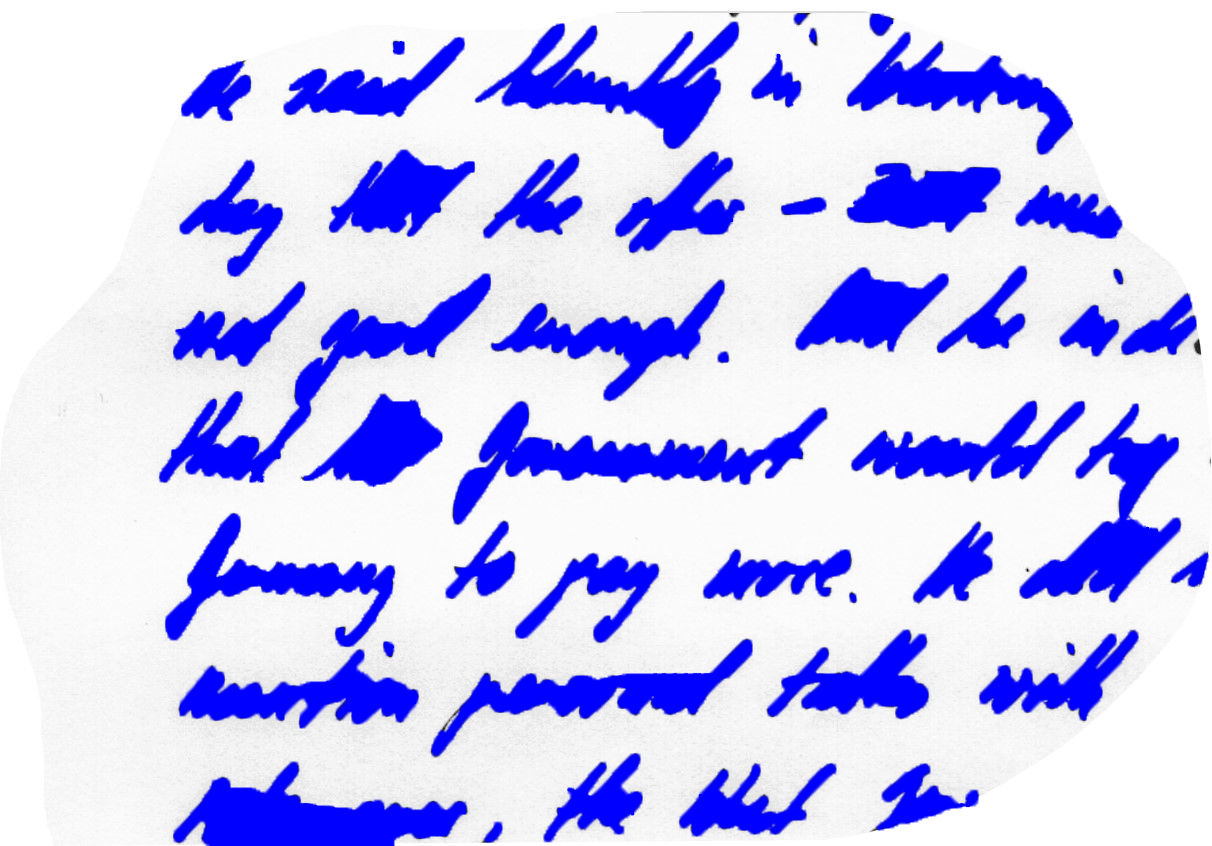 He said bluntly in
day that the offer - was
not good enough. But he
that the Government would try
Germany to pay more. He did
mention personal talks with
, the West